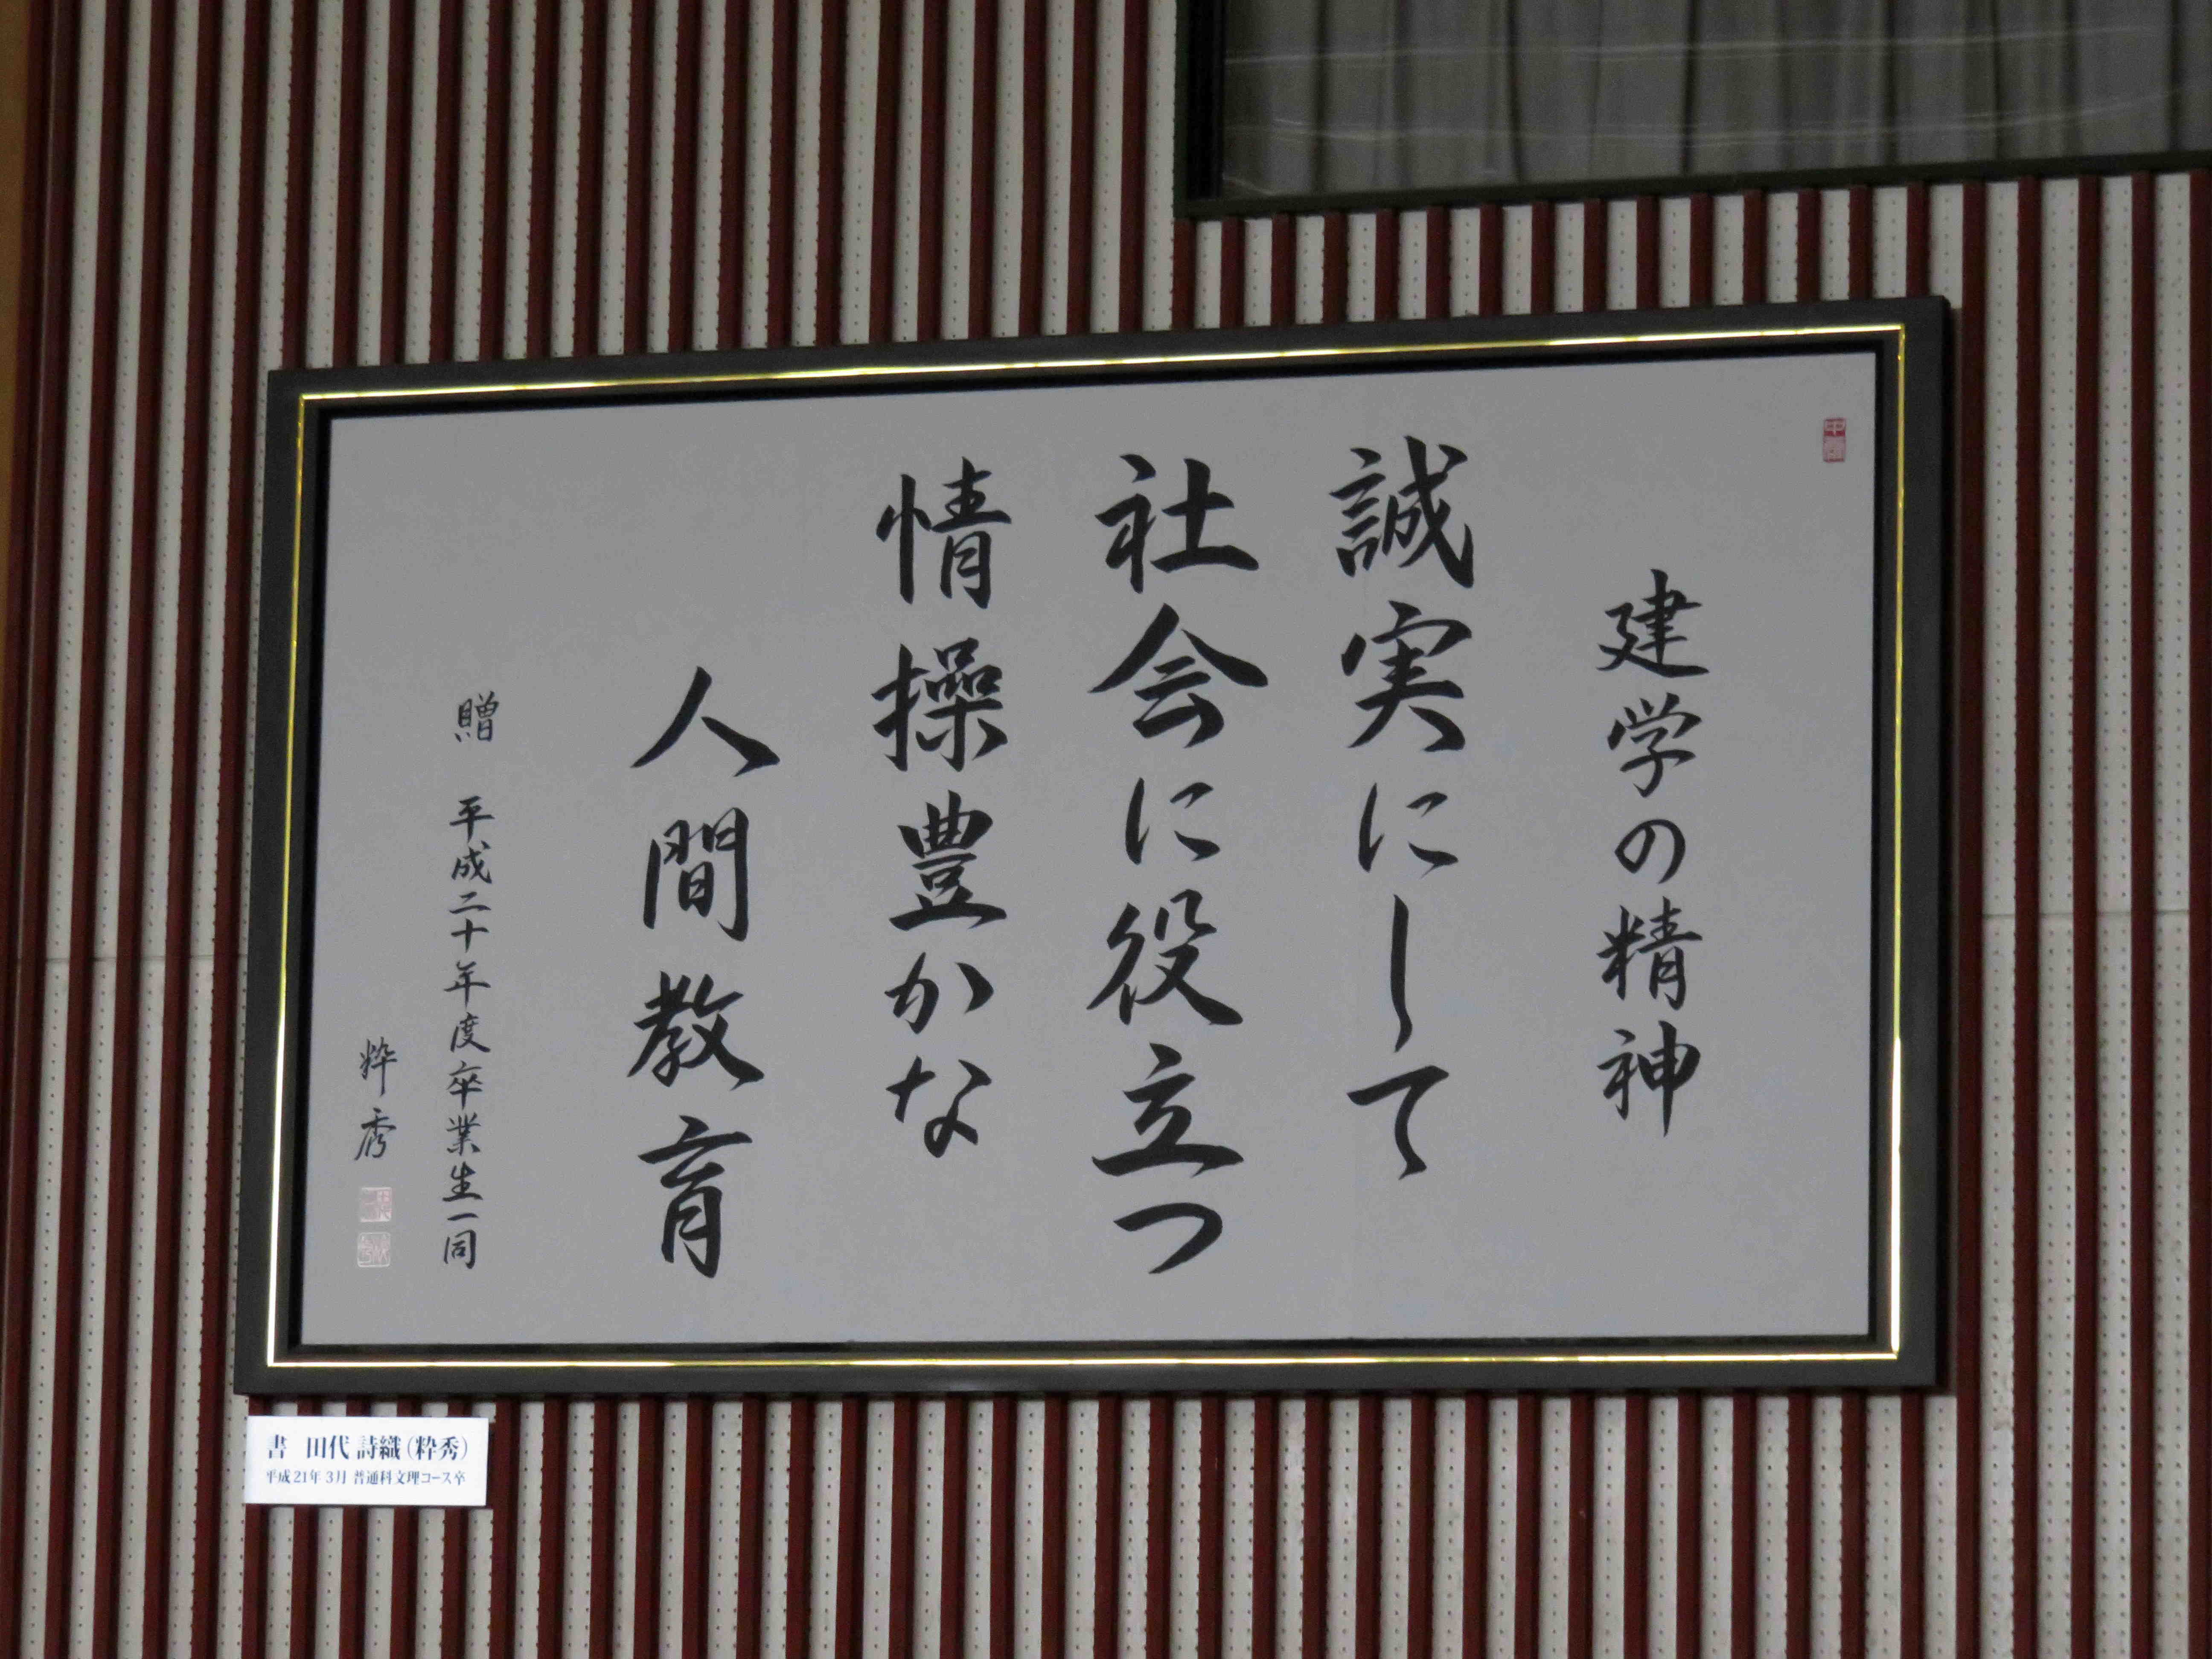 建学の精神
誠実にして
社会に役立つ
情操豊かな
人間教育
贈 平成二十年度卒業生一同
粋秀
書 田代 詩織(粋秀)
平成21年3月 普通科文理コース卒